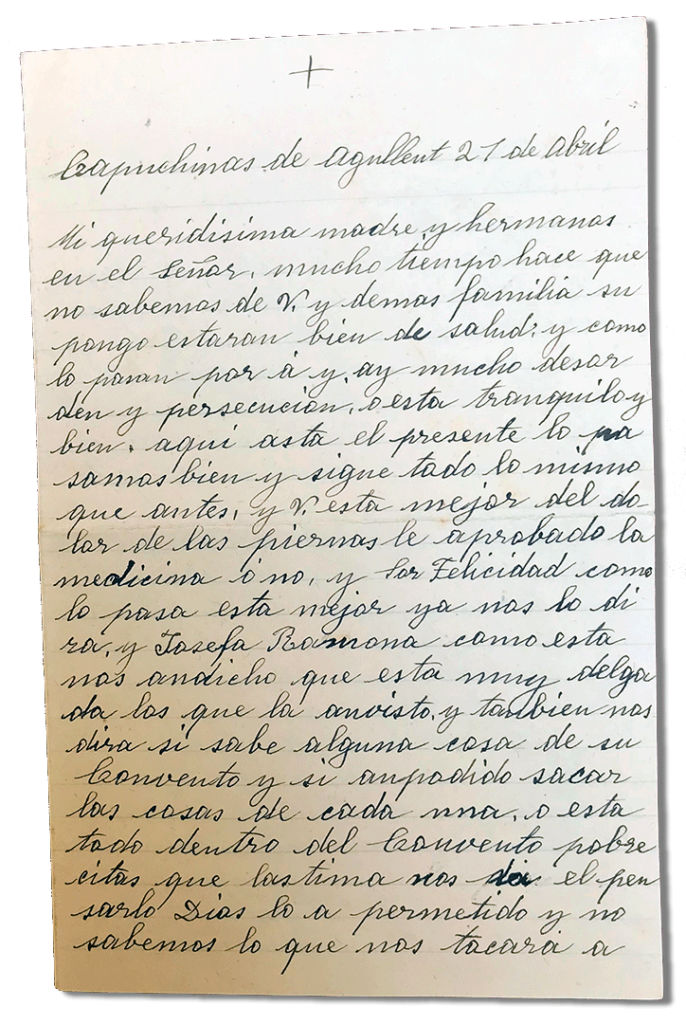 +
Capuchinas de Agullent 21 de Abril
Mi queridisima madre y hermanas
en el Señor, mucho tiempo hace que
no sabemos de V. y demas familia su
pongo estaran bien de salud: y como
lo pasan por á y, ay mucho desor
den y persecucion, o esta tranquilo y
bien. aqui asta el presente lo pa
samos bien y sigue todo lo mismo
que antes, y V. esta mejor del do-
lor de las piernas le aprobado la
medicina ó no, y Sor Felicidad como
lo pasa esta mejor ya nos lo di
ra, y Josefa Ramona como esta
nos andicho que esta muy delga
da las que la anvisto, y tanbien nos
dira si sabe alguna cosa de su
Convento y si anpodido sacar
las cosas de cada una, o esta
todo dentro del Convento pobre
citas que lastima nos da el pen
sarlo Dios lo a permetido y no
sabemos lo que nos tocará a